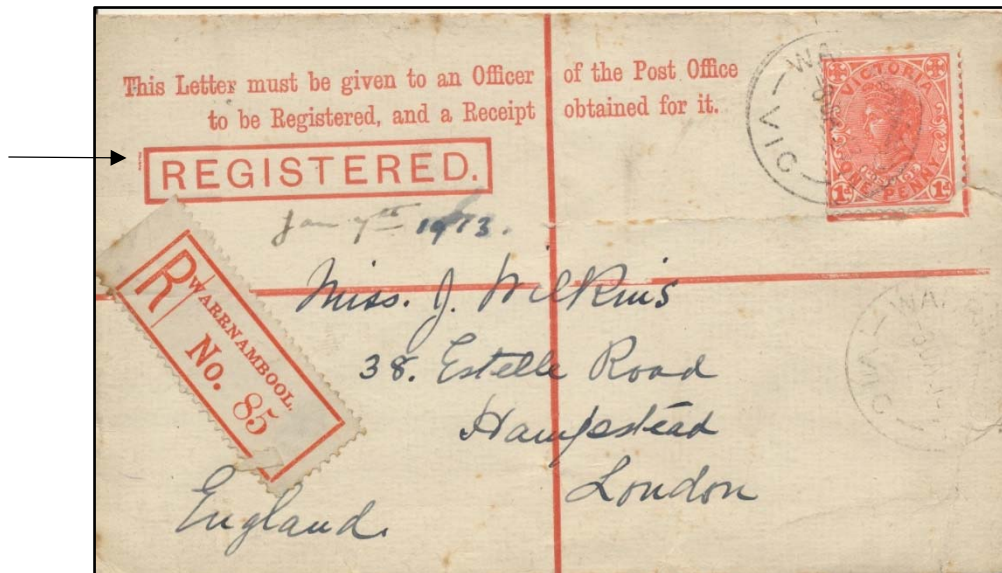 This Letter must be given to an Officer of the Post Office
to be Registered, and a Receipt obtained for it.
REGISTERED.
VIC
WA
VICTORIA
ONE PENNY
1d 1d
Jan 7th 1913.
R
WARRNAMBOOL.
No. 85
Miss. J. Wilkins
38. Estelle Road
Hampstead
London
England.
WA
VIC